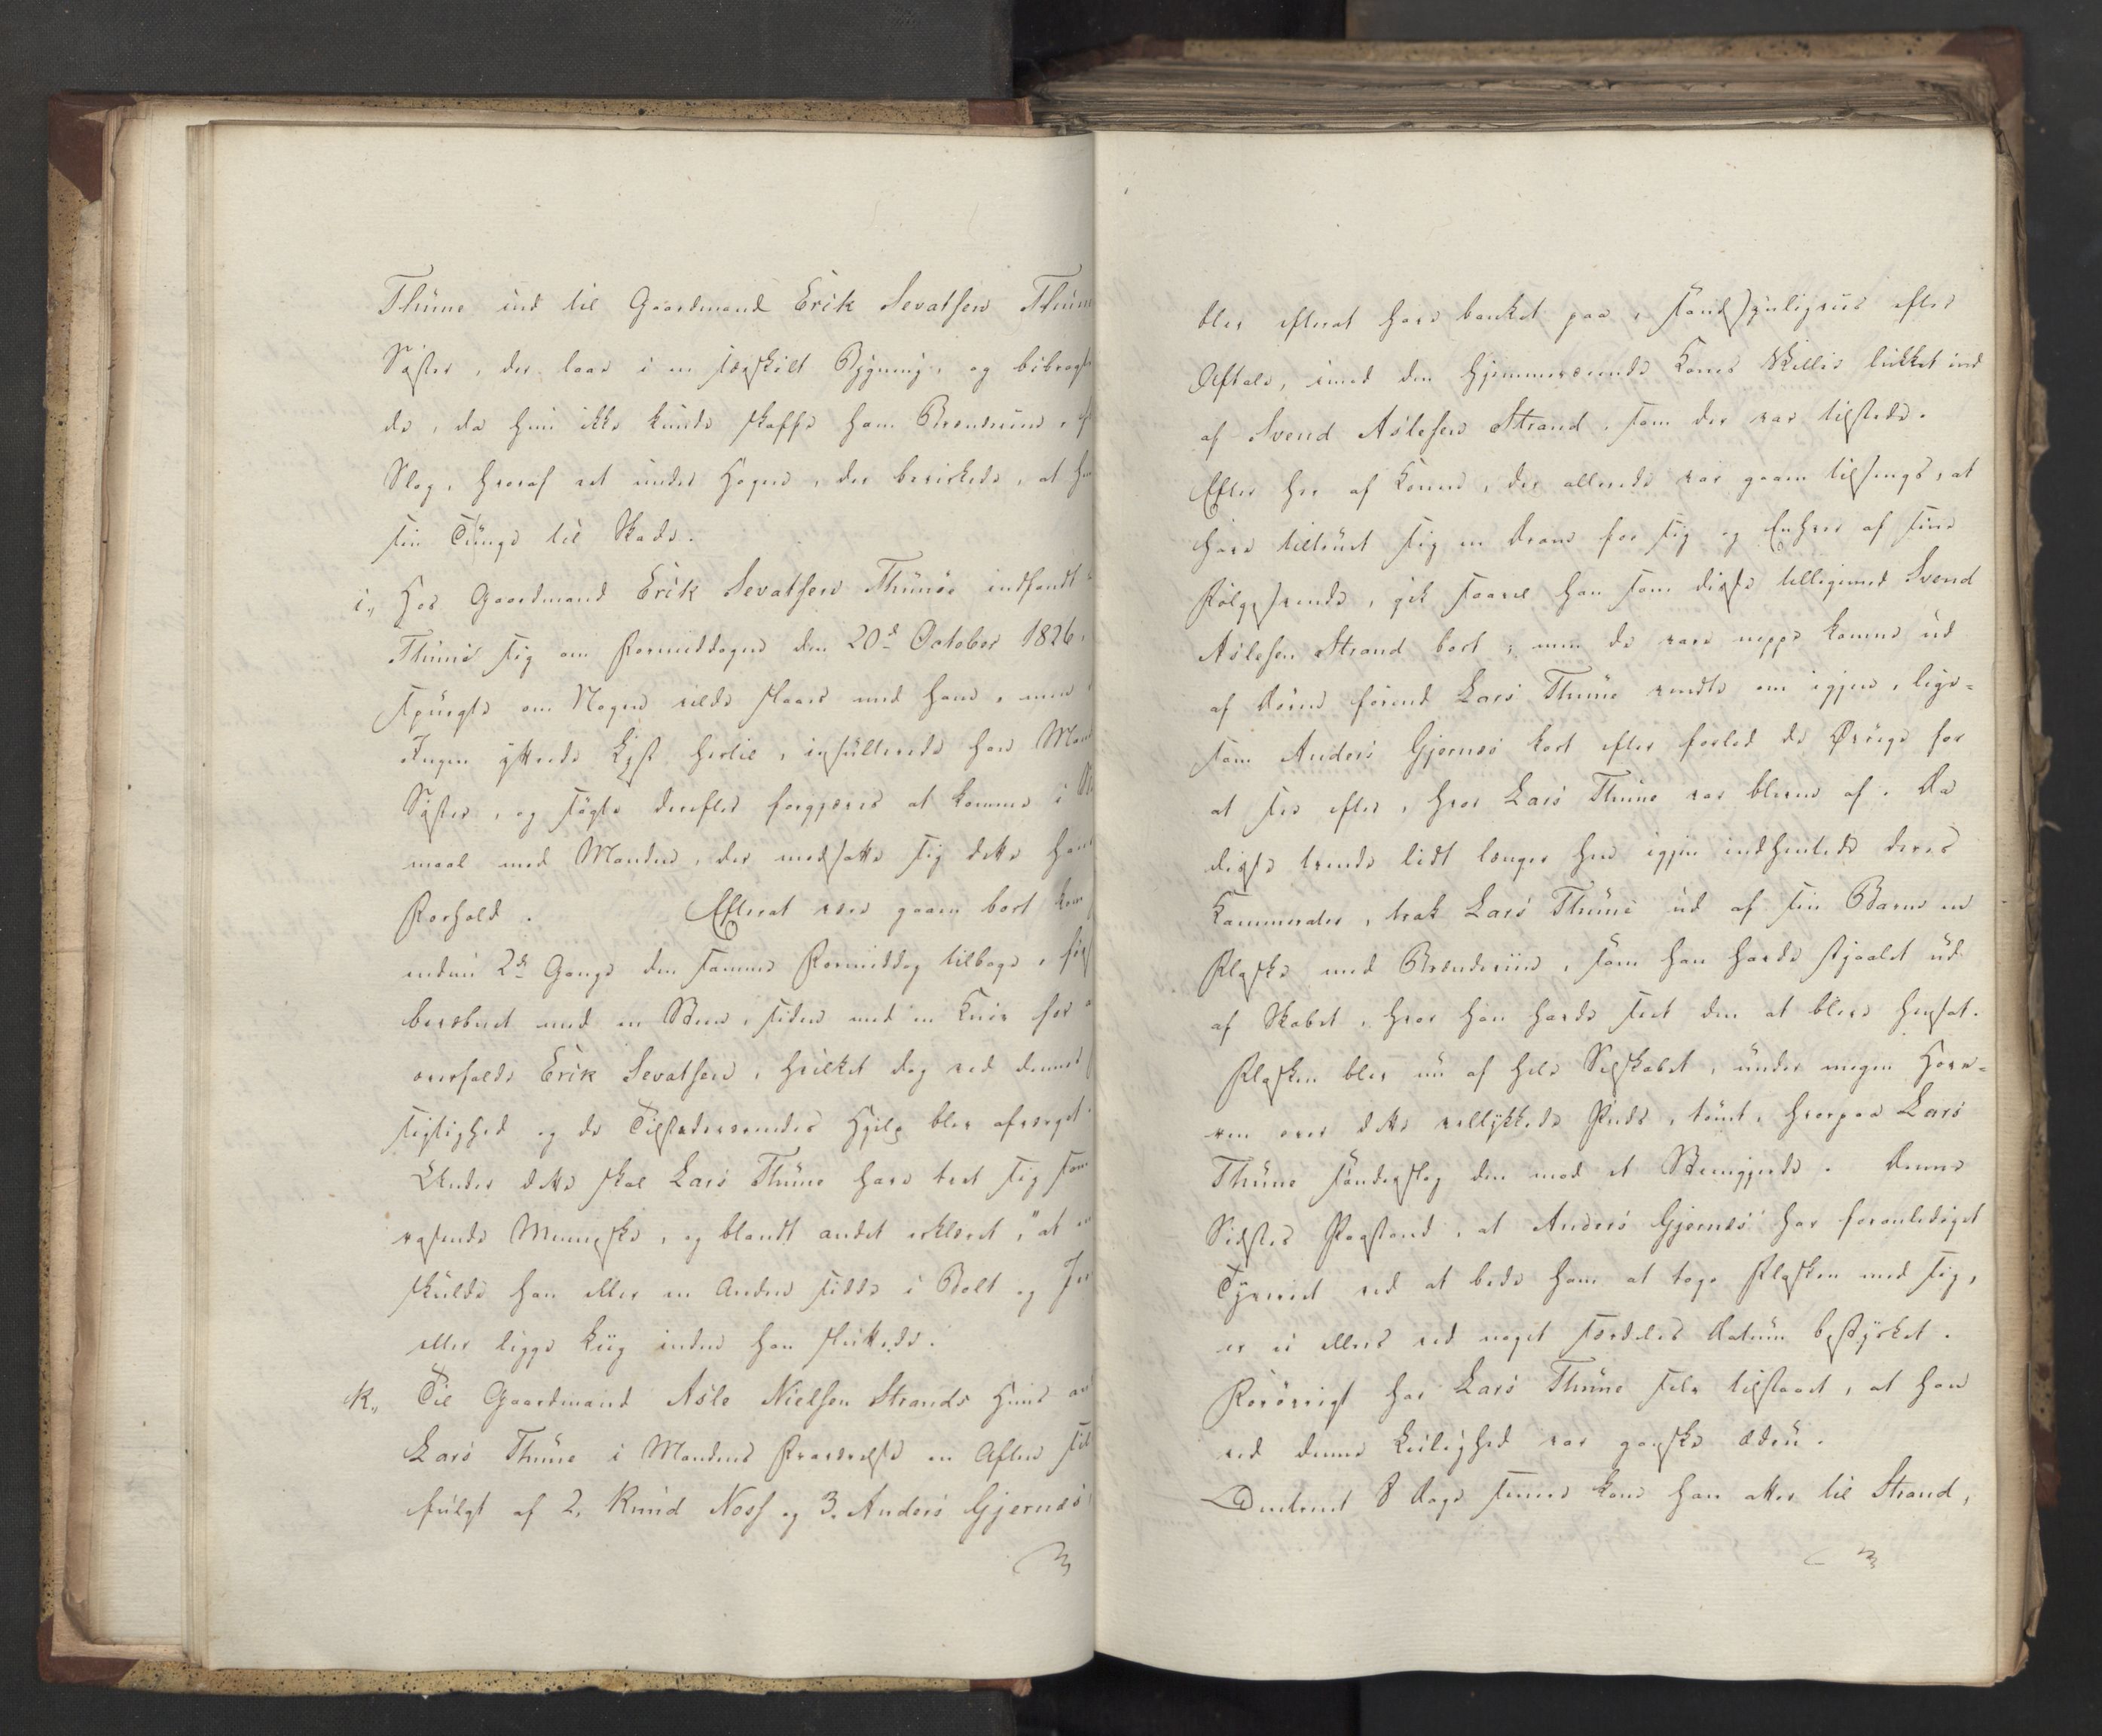 Thüne ind til Gaardmand Erik Sevatsen Thüne
Søster, der laae i en særskilt Bygning, og bibragte
de, da hun ikke kunde skaffe ham Brændeviin,
Slag, hvoraf et under Hagen, der bevirkede, at
sin Tunge til Skade.
i,, Hos Gaardmand Erik Sevatsen Thünes indfandt
Thüne sig om Formiddagen den 20de October 1826,
spurgte om Nogen vilde slaaes med ham, men
Ingen yttrede Lyst hertil, insulterede han
Søster, og søgte derefter forgjæves at komme i
maal med Manden, der modsatte sig dette
Forhold. Efterat være gaaen bort kom
endnu 2de Gange den samme Formiddag tilbage,
bevæbnet med en Steen, siden med en Kniv for
overfalde Erik Sevatsen, hvilket dog ved dennes
sigtighed og de Tilstedeværendes Hjelp blev afværget.
Under dette skal Lars Thüne have teet sig som
rasende Menneske, og blandt andet erklæret, "at
skulde han eller en Anden sidde i Bolt og
eller ligge Liig inden han sluttede.
k,, Til Gaardmand Asle Nielsen Strands Huus
Lars Thüne i Mandens Fraværelse en Aften
fulgt af 2, Knud Noss og 3. Anders Gjernæs
blev efterat have banket paa, sandsynligviis efter
Aftale, imod den hjemmeværende Kones Villie lukket ind
af Svend Aslesen Strand, som der var tilstede.
Efter her af Konen, der allerede var gaaen tilsengs, at
have tiltruet sig en Dram for sig og Enhver af sine
Følgesvende, gik saavel han som disse tilligemed Svend
Aslesen Strand bort; men de vare neppe komne ud
af Døren førend Lars Thüne vendte om igjen, lige-
som Anders Gjernæs kort efter forlod de Øvrige for
at see efter, hvor Lars Thüne var bleven af. Da
disse tvende lidt længer hen igjen indhentede deres
Kammerater, trak Lars Thüne ud af sin Barm en
Flaske med Brændeviin, som han havde stjaalet ud
af Skabet, hvor han havde seet den at blive hensat.
Flasken blev nu af hele Selskabet, under megen Hove-
ren over dette vellykkede Puds, tømt, hvorpaa Lars
Thüne sønderslog den mod et Steengjerde. Dennes
Sidstes Paastand, at Anders Gjernæs har foranlediget
Tyveriet ved at bede ham at tage Flasken med sig,
er ei ellers ved noget særdeles Datum bestyrket.
Forøvrigt har Lars Thüne selv tilstaaet, at han
ved denne Leilighed var ganske ædru.
Omtrent 8 Dage senere kom han atter til Strand,